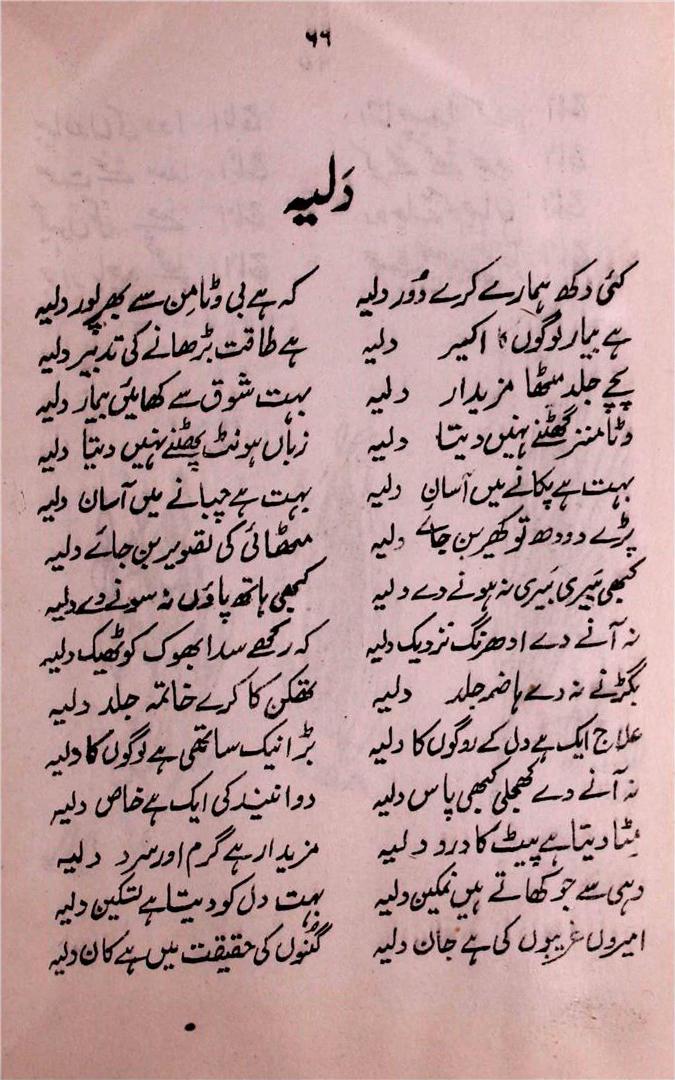 ۶۶
دَلیہ
کئی دکھ ہمارے کرے دُور دلیہ کہ ہے بی وٹامِن سے بھرپور دلیہ
ہے بیمار لوگوں کا اکسیر دلیہ ہے طاقت بڑھانے کی تدبیر دلیہ
پکے جلد میٹھا مزیدار دلیہ بہت شوق سے کھائیں بیمار دلیہ
وٹامنز گھٹنے نہیں دیتا دلیہ زباں ہونٹ پھٹنے نہیں دیتا دلیہ
بہت ہے پکانے میں آسان دلیہ بہت ہے چبانے میں آسان دلیہ
پڑے دودھ تو کھیر بن جائے دلیہ مٹھائی کی تصویر بن جائے دلیہ
کبھی بَیری بَیری نہ ہونے دے دلیہ کبھی ہاتھ پاؤں نہ سونے دے دلیہ
نہ آنے دے ادھرنگ نزدیک دلیہ کہ رکھے سدا بھوک کو ٹھیک دلیہ
بگڑنے نہ دے ہاضمہ جلد دلیہ تھکن کا کرے خاتمہ جلد دلیہ
علاج ایک ہے دل کے روگوں کا دلیہ بڑا نیک ساتھی ہے لوگوں کا دلیہ
نہ آنے دے کھجلی کبھی پاس دلیہ دوا نیند کی ایک ہے خاص دلیہ
مِٹا دیتا ہے پیٹ کا درد دلیہ مزیدار ہے گرم اور سرد دلیہ
دہی سے جو کھاتے ہیں نمکین دلیہ بہت دل کو دیتا ہے تسکین دلیہ
امیروں غریبوں کی ہے جان دلیہ گُنوں کی حقیقت میں ہے کان دلیہ